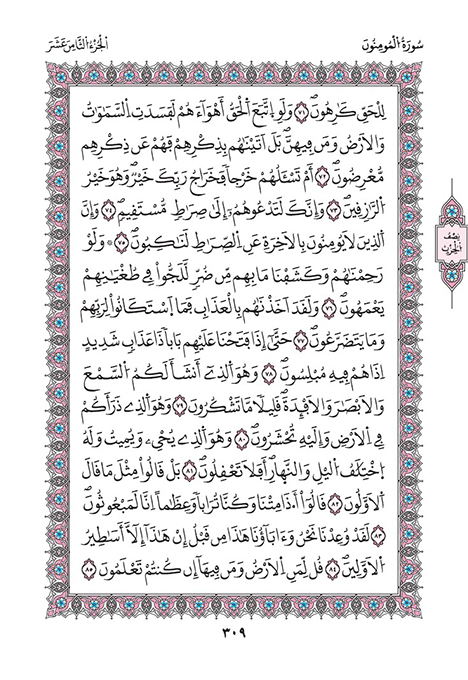 اُ۬لْجُزْءُ اُ۬لثَّامِنَ عَشَرَ
سُورَةُ اُ۬لْمُومِنُونَ
لِلْحَقِّ كَٰرِهُونَۖ ٧١ وَلَوِ اِ۪تَّبَعَ اَ۬لْحَقُّ أَهْوَآءَهُمْ لَفَسَدَتِ اِ۬لسَّمَٰوَٰتُ
وَالَارْضُ وَمَن فِيهِنَّۖ بَلَ اَتَيْنَٰهُم بِذِكْرِهِمْ فَهُمْ عَن ذِكْرِهِم
مُّعْرِضُونَۖ ٧٢ أَمْ تَسْـَٔلُهُمْ خَرْجاٗ فَخَرَاجُ رَبِّكَ خَيْرٞۖ وَهُوَ خَيْرُ
اُ۬لرَّٰزِقِينَۖ ٧٣ وَإِنَّكَ لَتَدْعُوهُمُۥٓ إِلَىٰ صِرَٰطٖ مُّسْتَقِيمٖۖ ٧٤ وَإِنَّ
اَ۬لذِينَ لَا يُومِنُونَ بِالَاخِرَةِ عَنِ اِ۬لصِّرَٰطِ لَنَٰكِبُونَۖ ٧٥ ۞ وَلَوْ
رَحِمْنَٰهُمْ وَكَشَفْنَا مَا بِهِم مِّن ضُرّٖ لَّلَجُّواْ فِے طُغْيَٰنِهِمْ
يَعْمَهُونَۖ ٧٦ وَلَقَدَ اَخَذْنَٰهُم بِالْعَذَابِ فَمَا اَ۪سْتَكَانُواْ لِرَبِّهِمْ
وَمَا يَتَضَرَّعُونَۖ ٧٧ حَتَّىٰٓ إِذَا فَتَحْنَا عَلَيْهِم بَاباٗ ذَا عَذَابٖ شَدِيدٍ
اِذَا هُمْ فِيهِ مُبْلِسُونَۖ ٧٨ وَهُوَ اَ۬لذِےٓ أَنشَأَ لَكُمُ اُ۬لسَّمْعَ
وَالَابْصَٰرَ وَالَافْـِٕدَةَۖ قَلِيلاٗ مَّا تَشْكُرُونَۖ ٧٩ وَهُوَ اَ۬لذِے ذَرَأَكُمْ
فِے اِ۬لَارْضِ وَإِلَيْهِ تُحْشَرُونَۖ ٨٠ وَهُوَ اَ۬لذِے يُحْيِۦ وَيُمِيتُ وَلَهُ
اُ۪خْتِلَٰفُ اُ۬ليْلِ وَالنَّهَارِۖ أَفَلَا تَعْقِلُونَۖ ٨١ بَلْ قَالُواْ مِثْلَ مَا قَالَ
اَ۬لَاوَّلُونَۖ ٨٢ قَالُوٓاْ أَٰ۟ذَا مِتْنَا وَكُنَّا تُرَاباٗ وَعِظَٰماً اِنَّا لَمَبْعُوثُونَۖ
٨٣ لَقَدْ وُعِدْنَا نَحْنُ وَءَابَآؤُنَا هَٰذَا مِن قَبْلُ إِنْ هَٰذَآ إِلَّآ أَسَٰطِيرُ
اُ۬لَاوَّلِينَۖ ٨٤ قُل لِّمَنِ اِ۬لَارْضُ وَمَن فِيهَآ إِن كُنتُمْ تَعْلَمُونَۖ ٨٥
نِصْفُ
الْحِزْبِ
٣٠٩